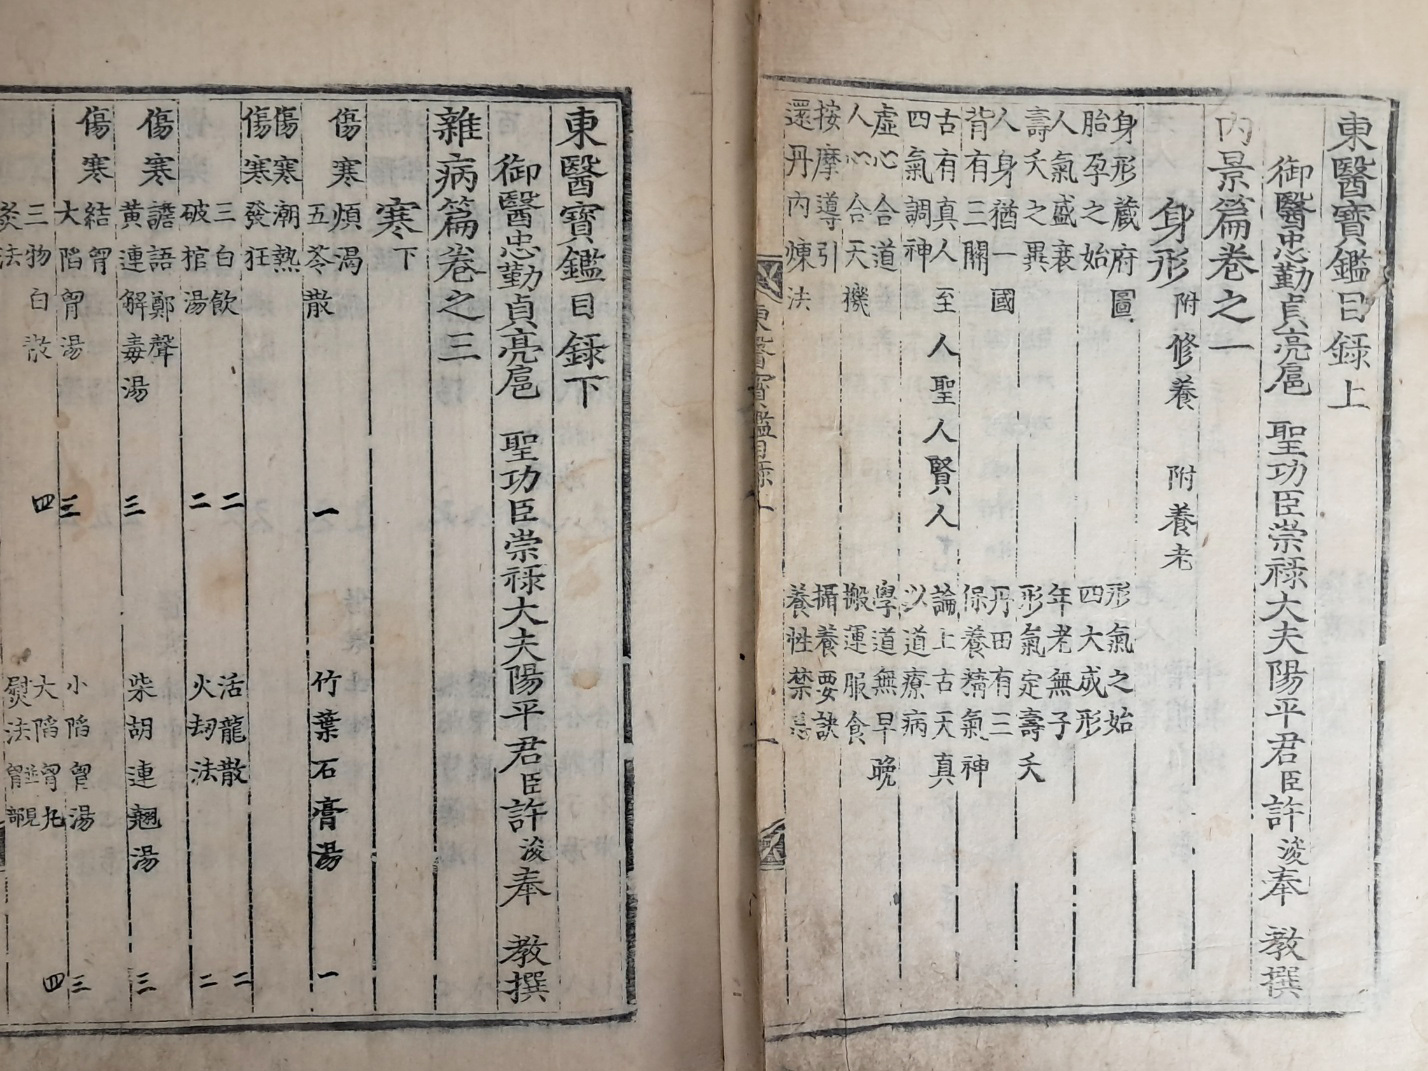 東醫寶鑑目録上
御醫忠勤貞亮扈 聖功臣崇祿大夫陽平君臣許浚奉 教撰
内景篇卷之一
身形 附修養 附養老
身形藏府圖 形氣之始
胎孕之始 四大成形
人氣盛衰 年老無子
壽夭之異 形氣定壽夭
人身猶一國 丹田有三
背有三關 保養精氣神
古有真人至人聖人賢人 論上古天真
四氣調神 以道療病
虛心合道 學道無早晚
人心合天機 搬運服食
按摩導引 攝養要訣
還丹内煉法 養性禁忌
東醫寶鑑目録上
東醫寶鑑目録下
御醫忠勤貞亮扈 聖功臣崇祿大夫陽平君臣許浚奉 教撰
雜病篇卷之三
寒下
傷寒煩渴
五苓散 一 竹葉石膏湯 一
傷寒潮熱
傷寒發狂
三白飲 二 活龍散 二
破棺湯 二 火刧法 二
傷寒譫語鄭聲
黃連解毒湯 三 柴胡連翹湯 三
傷寒結胷
大陷胷湯 三 小陷胷湯 三
三物白散 四 大陷胷丸 四
灸法 熨法並見胷部